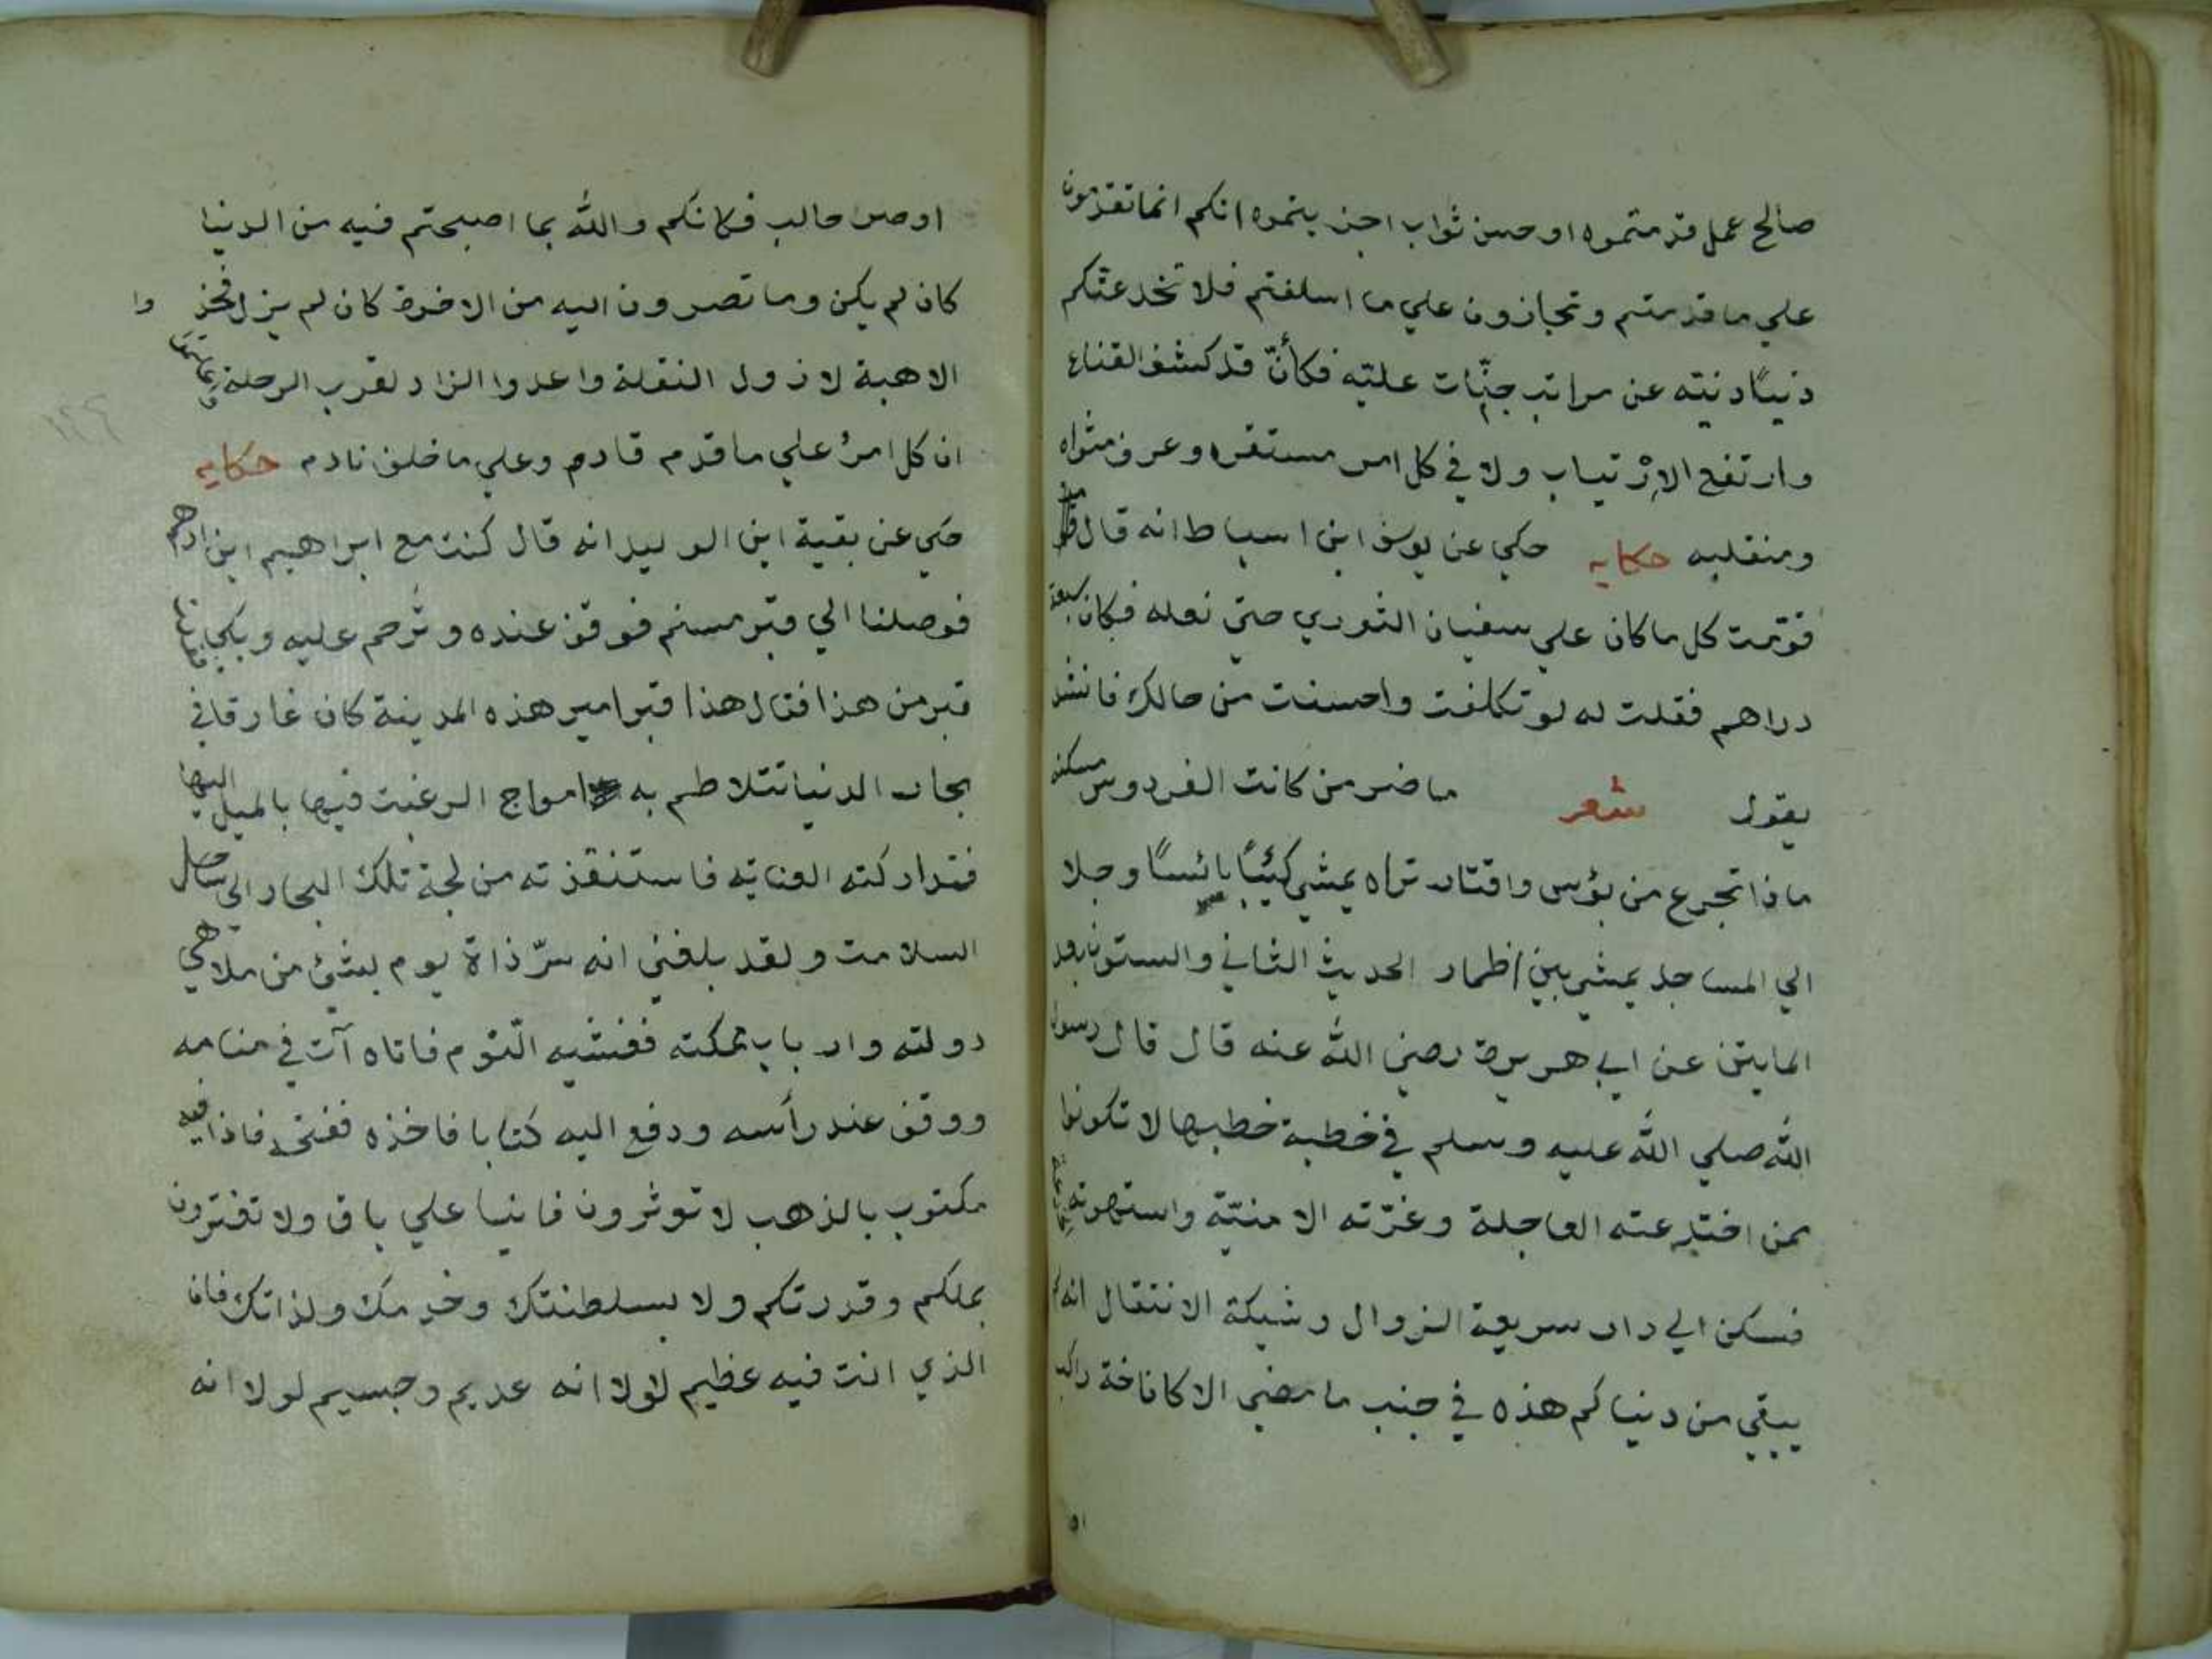 صالح عمل قدمتموه او حسن ثواب اجزيتموه انكم انما تقدمون
علي ما قدمتم وتجازون علي ما اسلفتم فلا تخدعنكم
دنيًا دنيته عن مراتب جنّات عليّه فكأنّ قد كشف القناع
وارتفع الإرتياب ولا في كل امر مستقره وعرف مثواه
ومنقلبه حكايه حكي عن يوسف ابن اسباط انه قال
فقومت كل ما كان علي سفيان الثوري حتي نعله فكان سبعة
دراهم فقلت له لو تكلفت واحسنت من حالك فانشد
يقول شعر ما ضر من كانت الفردوس مسكنه
ماذا تجرع من بؤس واقتار تراه يمشي كئيبًا بائسًا وجلا
الي المساجد يمشي بين اطمار الحديث الثاني والستون بعد
المايتن عن ابي هريرة رضي الله عنه قال قال رسول
الله صلي الله عليه وسلم في خطبة خطبها لا تكونوا
ممن اختدعته العاجلة وغرّته الامنيّة واستهوته الخدعة
فسكن الي دار سريعة الزوال وشيكة الانتقال انه لم
يبقي من دنياكم هذه في جنب ما مضي الا كاناخة راكب
او صر حالب فكانكم والله بما اصبحتم فيه من الدنيا
كان لم يكن وما تصرون اليه من الاخرة كان لم يزل فخذ وا
الاهبة لازول النقلة واعدوا الزاد لقرب الرحلة واعلموا
ان كل امرئ علي ما قدم قادم وعلي ما خلف نادم حكايه
حكي عن بقية ابن الوليد انه قال كنت مع ابراهيم ابن ادهم
فوصلنا الي قبر مسنم فوقف عنده وترحم عليه وبكي
قبر من هذا فقال هذا قبر امير هذه المدينة كان غارقا في
بحار الدنيا تتلاطم به امواج الرغبت فيها بالميل اليها
فتداركته العنايه فاستنقذته من لجة تلك البحار الي ساحل
السلامت ولقد بلغني انه سرّ ذاة يوم بشئ من ملاهي
دولته وارباب مملكته فغشيه النّوم فاتاه آت في منامه
ووقف عند رأسه ودفع اليه كتابا فاخذه ففتحه فاذا فيه
مكتوب بالذهب لا توثرون فانيا علي باق ولا تغترون
بملكم وقدرتكم ولا بسلطنتك وخدمك ولذاتك فان
الذي انت فيه عظيم لولا انه عديم وجسيم لولا انه